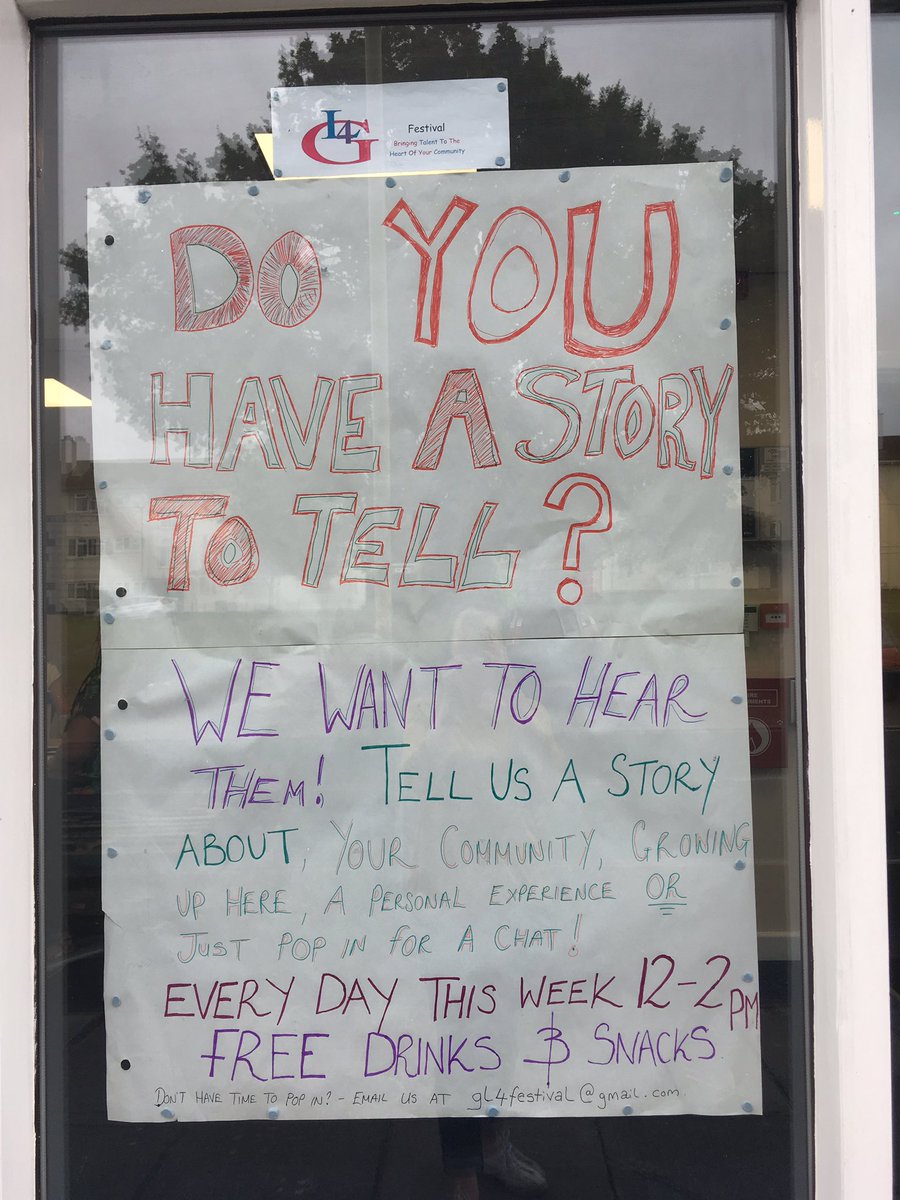 GL4
Festival
Bringing Talent To The
Heart Of Your Community
DO YOU
HAVE A STORY
TO TELL?
WE WANT TO HEAR
THEM! TELL US A STORY
ABOUT, YOUR COMMUNITY, GROWING
UP HERE, A PERSONAL EXPERIENCE OR
JUST POP IN FOR A CHAT!
EVERY DAY THIS WEEK 12-2PM
FREE DRINKS & SNACKS
DON'T HAVE TIME TO POP IN? - EMAIL US AT gl4festival@gmail.com.